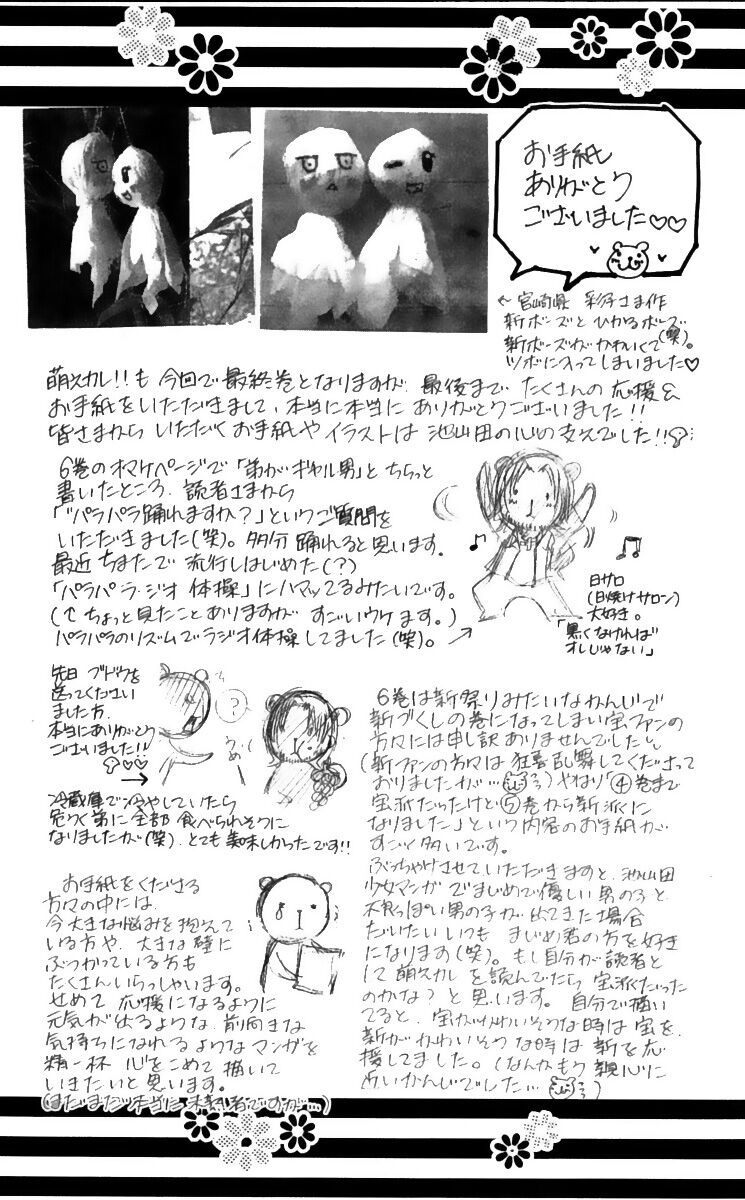 お手紙
ありがとう
ございました♡♡
← 宮崎県 彩子さま作
新ボーズとひかるボーズ
新ボーズがかわいくて(笑)。
ツボに入ってしまいました♡
萌えカレ!!も今回で最終巻となりますが、最後までたくさんの応援&
お手紙をいただきまして、本当に本当にありがとうございました!!
皆さまからいただくお手紙やイラストは池山田の心の支えでした!!
6巻のオマケページで「弟がギャル男」とちらっと
書いたところ、読者さまから
「"パラパラ踊れますか?」というご質問を
いただきました(笑)。多分踊れると思います。
最近ちまたで流行しはじめた(?)
「パラパラ・ラジオ体操」にハマッてるみたいです。
(↑ちょっと見たことありますがすごいウケます。)
パラパラのリズムでラジオ体操してました(笑)。→
日サロ
(日焼けサロン)
大好き。
「黒くなければ
オレじゃない」
先日ブドウを
送ってください
ました方、
本当にありがとう
ございました!!
♡♡
→
?
うめー
冷蔵庫で冷やしていたら
危うく弟に全部食べられそうに
なりましたが(笑)、とても美味しかったです!!
お手紙をくださる
方々の中には、
今大きな悩みを抱えて
いる方や、大きな壁に
ぶつかっている方も
たくさんいらっしゃいます。
せめて応援になるように
元気が出るような、前向きな
気持ちになれるようなマンガを
精一杯心をこめて描いて
いきたいと思います。
(まだまだ本当に未熟者ですが…)
6巻は新祭りみたいなかんじで
新づくしの巻になってしまい宝ファンの
方々には申し訳ありませんでした
(新ファンの方々は狂喜乱舞してくださって
おりましたが…)やはり「④巻まで
宝派だったけど⑤巻から新派に
なりました」という内容のお手紙が
すごく多いです。
ぶっちゃけさせていただきますと、池山田
少女マンガでまじめで優しい男の子と
不良っぽい男の子が出てきた場合
だいたいいつもまじめ君の方を好き
になります(笑)。もし自分が読者と
して萌えカレを読んでたら宝派だった
のかな?と思います。自分で描い
てると、宝がかわいそうな時は宝を、
新がかわいそうな時は新を応
援してました。(なんかもう親心に
近いかんじでした…)